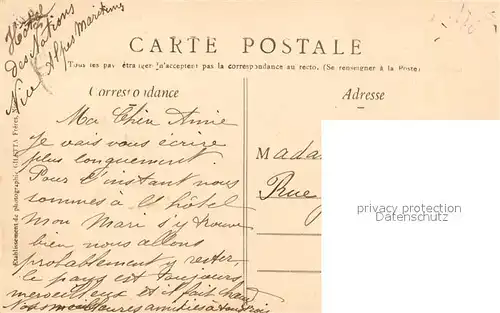 Hôtel
des Nations
Nice Alpes Maritimes
CARTE POSTALE
Tous les pays étrangers n'acceptent pas la correspondance au recto. (Se renseigner à la Poste)
Correspondance
Adresse
Etablissement de photographie GILETTA Frères,
Ma Chère Amie
Je vais vous écrire
plus longuement.
Pour l'instant nous
sommes à l'hôtel
mon Mari s'y trouve
bien nous allons
probablement y rester,
le pays est toujours
merveilleux et il fait chaud
Nos meilleures amitiés à tous trois
Mada
Rue
privacy protection
Datenschutz